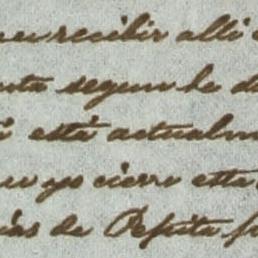 recibir alli
segun he d
está actualm
yo cierre esta
ias de Pepita